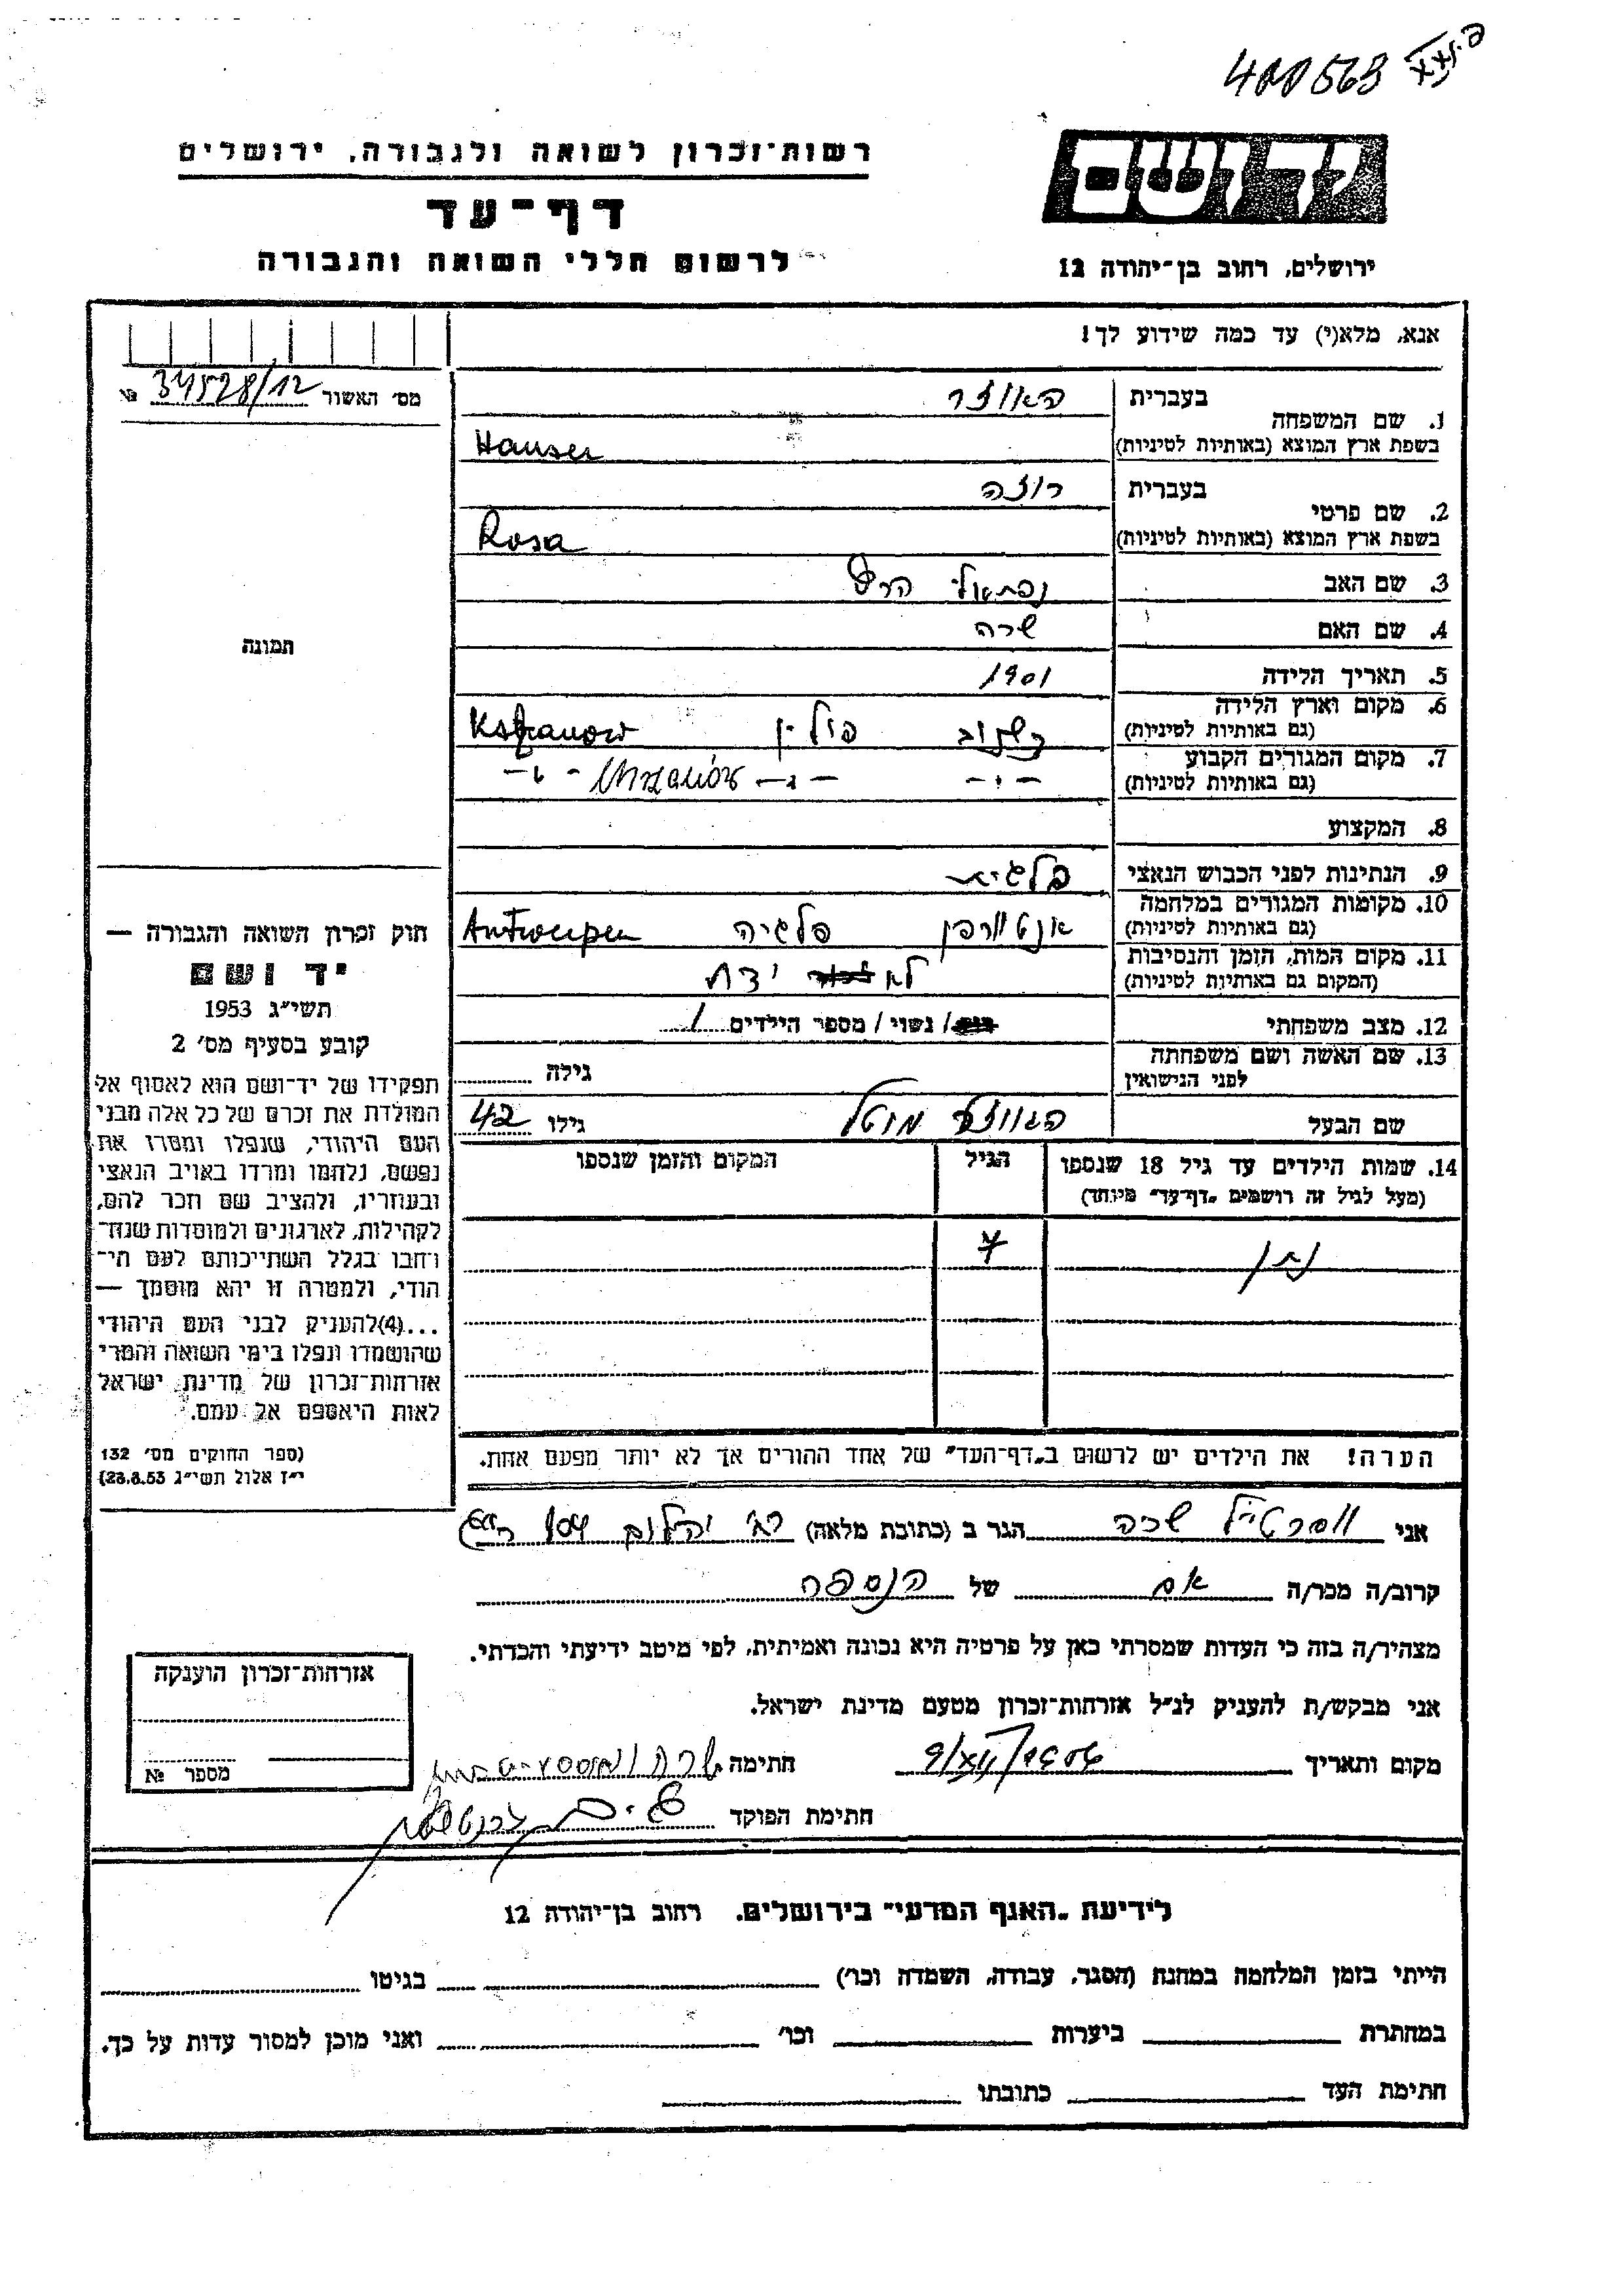 400563
רשות־זכרון לשואה ולגבורה, ירושלים
דף־עד
לרשום חללי השואה והגבורה
ירושלים, רחוב בן־יהודה 12
אנא, מלא(י) עד כמה שידוע לך!
מס׳ האשור 34528/12 №
1. שם המשפחה
בעברית האוזר
בשפת ארץ המוצא (באותיות לטיניות) Hauser
2. שם פרטי
בעברית רוזה
בשפת ארץ המוצא (באותיות לטיניות) Rosa
3. שם האב נפתאלי הרש
4. שם האם שרה
5. תאריך הלידה 1901
6. מקום וארץ הלידה פולין
(גם באותיות לטיניות)
7. מקום המגורים הקבוע
(גם באותיות לטיניות)
8. המקצוע
9. הנתינות לפני הכבוש הנאצי בלגיא
10. מקומות המגורים במלחמה אנטוורפן בלגיה Antwerpen
(גם באותיות לטיניות)
11. מקום המות, הזמן והנסיבות לא
(המקום גם באותיות לטיניות)
12. מצב משפחתי / נשוי / מספר הילדים 1
13. שם האשה ושם משפחתה גילה
לפני הנישואין
שם הבעל האוזר מוטל גילו 42
14. שמות הילדים עד גיל 18 שנספו הגיל המקום והזמן שנספו
(מעל לגיל זה רושמים „דף־עד״ מיוחד)
נתן 7
הערה! את הילדים יש לרשום ב„דף־העד״ של אחד ההורים אך לא יותר מפעם אחת.
תמונה
חוק זכרון השואה והגבורה —
יד ושם
תשי״ג 1953
קובע בסעיף מס׳ 2
תפקידו של יד־ושם הוא לאסוף אל
המולדת את זכרם של כל אלה מבני
העם היהודי, שנפלו ומסרו את
נפשם, נלחמו ומרדו באויב הנאצי
ובעוזריו, ולהציב שם וזכר להם,
לקהילות, לארגונים ולמוסדות שנח־
רבו בגלל השתייכותם לעם הי־
הודי, ולמטרה זו יהא מוסמך —
...(4)להעניק לבני העם היהודי
שהושמדו ונפלו בימי השואה והמרי
אזרחות־זכרון של מדינת ישראל
לאות היאספם אל עמם.
(ספר החוקים מס׳ 132
י״ז אלול תשי״ג 28.8.53)
אני שרה הגר ב (כתובת מלאה)
קרוב/ה מכר/ה אם של הנספה
מצהיר/ה בזה כי העדות שמסרתי כאן על פרטיה היא נכונה ואמיתית, לפי מיטב ידיעתי והכרתי.
אני מבקש/ת להעניק לנ״ל אזרחות־זכרון מטעם מדינת ישראל.
מקום ותאריך חתימה שרה
חתימת הפוקד
אזרחות־זכרון הוענקה
מספר №
לידיעת „האגף המדעי״ בירושלים. רחוב בן־יהודה 12
הייתי בזמן המלחמה במחנה (הסגר, עבודה, השמדה וכו׳) בגיטו
במחתרת ביערות וכו׳ ואני מוכן למסור עדות על כך.
חתימת העד כתובתו